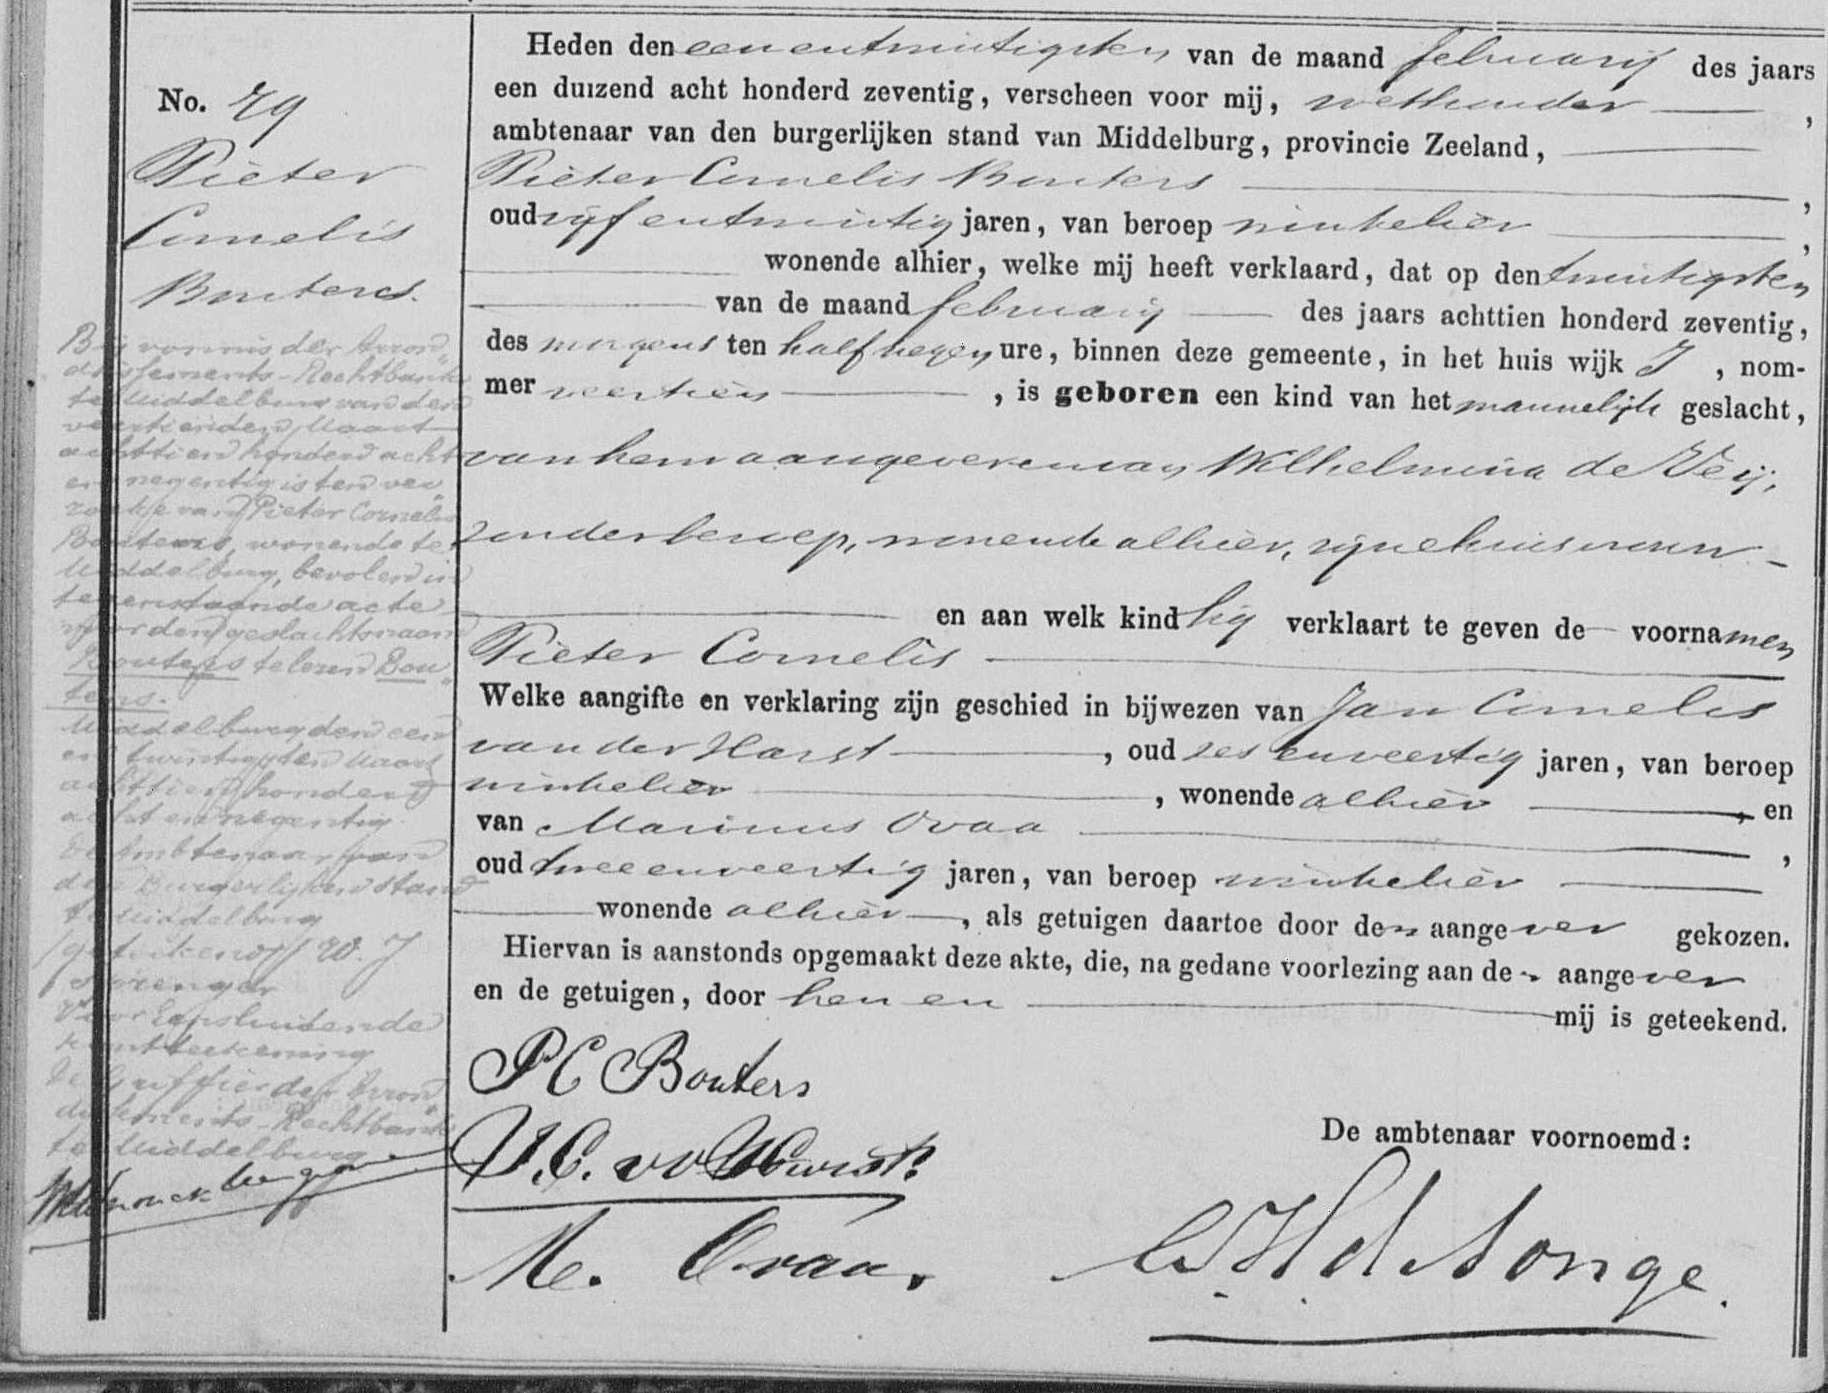 No. 79
Pieter
Cornelis
Bouters.
Heden den een en twintigsten van de maand februarij des jaars
een duizend acht honderd zeventig, verscheen voor mij, wethouder,
ambtenaar van den burgerlijken stand van Middelburg, provincie Zeeland,
Pieter Cornelis Bouters,
oud vijf en twintig jaren, van beroep winkelier,
wonende alhier, welke mij heeft verklaard, dat op den twintigsten
van de maand februarij des jaars achttien honderd zeventig,
des morgens ten half negen ure, binnen deze gemeente, in het huis wijk J, nom-
mer veertien, is geboren een kind van het mannelijk geslacht,
van hem aangever en van Wilhelmina de Veij,
zonder beroep, wonende alhier, zijne huisvrouw
en aan welk kind hij verklaart te geven de voornamen
Pieter Cornelis
Welke aangifte en verklaring zijn geschied in bijwezen van Jan Cornelis
van der Harst, oud zes en veertig jaren, van beroep
winkelier, wonende alhier, en
van Marinus Ovaa,
oud twee en veertig jaren, van beroep winkelier
wonende alhier, als getuigen daartoe door den aangever gekozen.
Hiervan is aanstonds opgemaakt deze akte, die, na gedane voorlezing aan den aangever
en de getuigen, door hen en mij is geteekend.
P C Bouters
J. C. v d Harst
M. Ovaa.
De ambtenaar voornoemd:
Bij vonnis der Arron„
dissements-Rechtbank
te Middelburg van den
veertienden Maart
achttien honderd acht
en negentig is ten ver„
zoeke van Pieter Cornelis
Boutens, wonende te
Middelburg, bevolen in
tegenstaande acte
voor den geslachtsnaam
Bouters te lezen Bou„
tens.
Middelburg den een
en twintigsten Maart
achttien honderd
acht en negentig.
De Ambtenaar van
den Burgerlijken stand
te Middelburg
(geteekend) W. J.
Sprenger
Voor eensluidende
kantteekening
De Griffier der Arron„
dissements-Rechtbank
te Middelburg